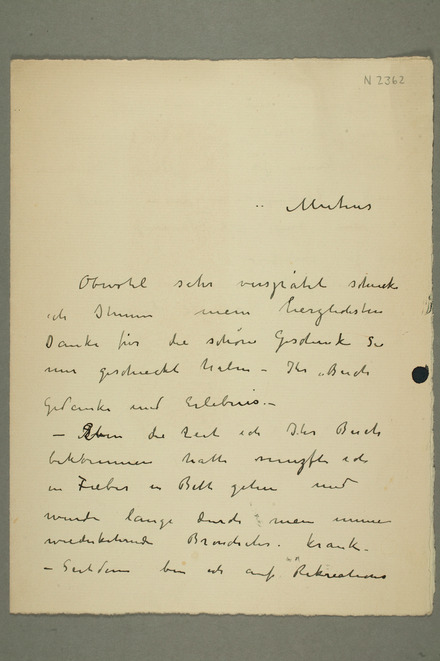 N 2362
Obwohl sehr verspätet schicke
ich Ihnen mein herzlichsten
Danke für die schöne Geschenk Sie
mir geschickt haben – Ihr Buch
Gedanke und Erlebnis. –
– die Zeit ich Ihr Buch
bekommen hatte musste ich
in Fieber in Bett gehen und
wurde lange durch mein immer
wiederkehrende Bronchitis krank.
– Seitdem bin ich auf Rekreations